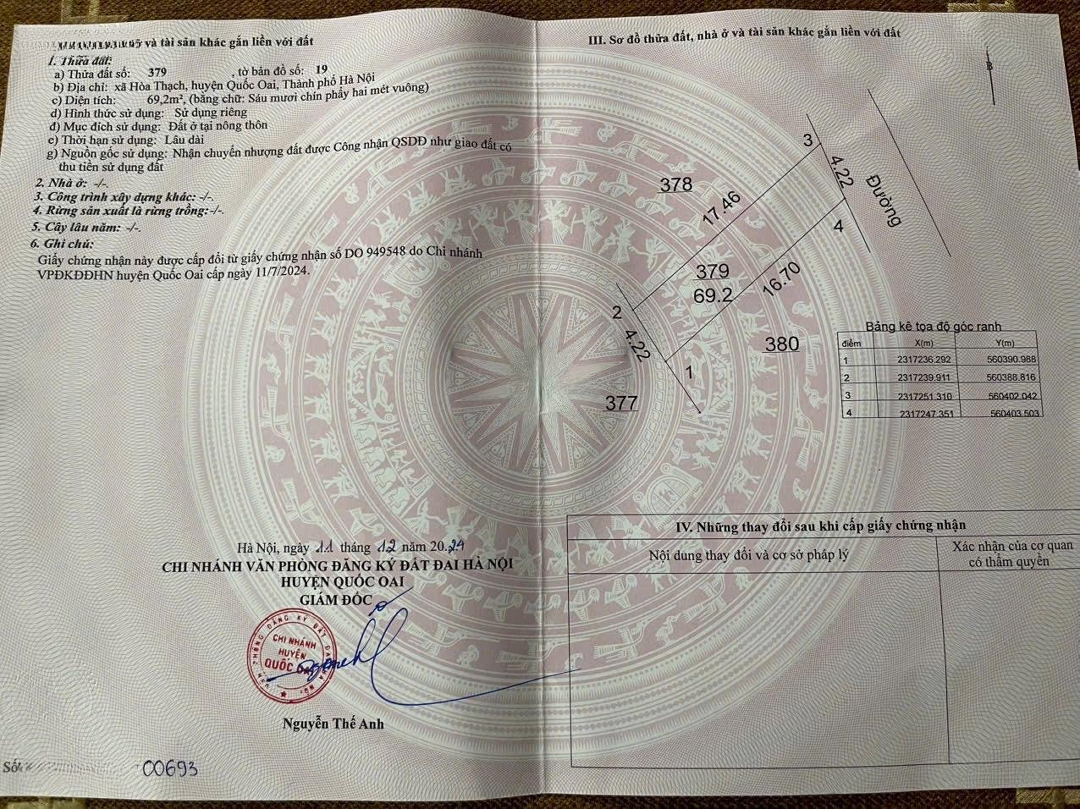 và tài sản khác gắn liền với đất
1. Thửa đất:
a) Thửa đất số: 379 , tờ bản đồ số: 19
b) Địa chỉ: xã Hòa Thạch, huyện Quốc Oai, Thành phố Hà Nội
c) Diện tích: 69,2m², (bằng chữ: Sáu mươi chín phẩy hai mét vuông)
d) Hình thức sử dụng: Sử dụng riêng
đ) Mục đích sử dụng: Đất ở tại nông thôn
e) Thời hạn sử dụng: Lâu dài
g) Nguồn gốc sử dụng: Nhận chuyển nhượng đất được Công nhận QSDĐ như giao đất có
thu tiền sử dụng đất
2. Nhà ở: -/-.
3. Công trình xây dựng khác: -/-.
4. Rừng sản xuất là rừng trồng:-/-.
5. Cây lâu năm: -/-.
6. Ghi chú:
Giấy chứng nhận này được cấp đổi từ giấy chứng nhận số DO 949548 do Chi nhánh
VPĐKĐĐHN huyện Quốc Oai cấp ngày 11/7/2024.
Hà Nội, ngày 11 tháng 12 năm 2024
CHI NHÁNH VĂN PHÒNG ĐĂNG KÝ ĐẤT ĐAI HÀ NỘI
HUYỆN QUỐC OAI
GIÁM ĐỐC
CHI NHÁNH
HUYỆN
QUỐC OAI
Nguyễn Thế Anh
Số
00693
III. Sơ đồ thửa đất, nhà ở và tài sản khác gắn liền với đất
B
3
4.22
Đường
378
17.46
4
379
69.2
16.70
2
4.22
380
1
377
Bảng kê tọa độ góc ranh
điểm X(m) Y(m)
1 2317236.292 560390.988
2 2317239.911 560388.816
3 2317251.310 560402.042
4 2317247.351 560403.503
IV. Những thay đổi sau khi cấp giấy chứng nhận
Nội dung thay đổi và cơ sở pháp lý
Xác nhận của cơ quan
có thẩm quyền